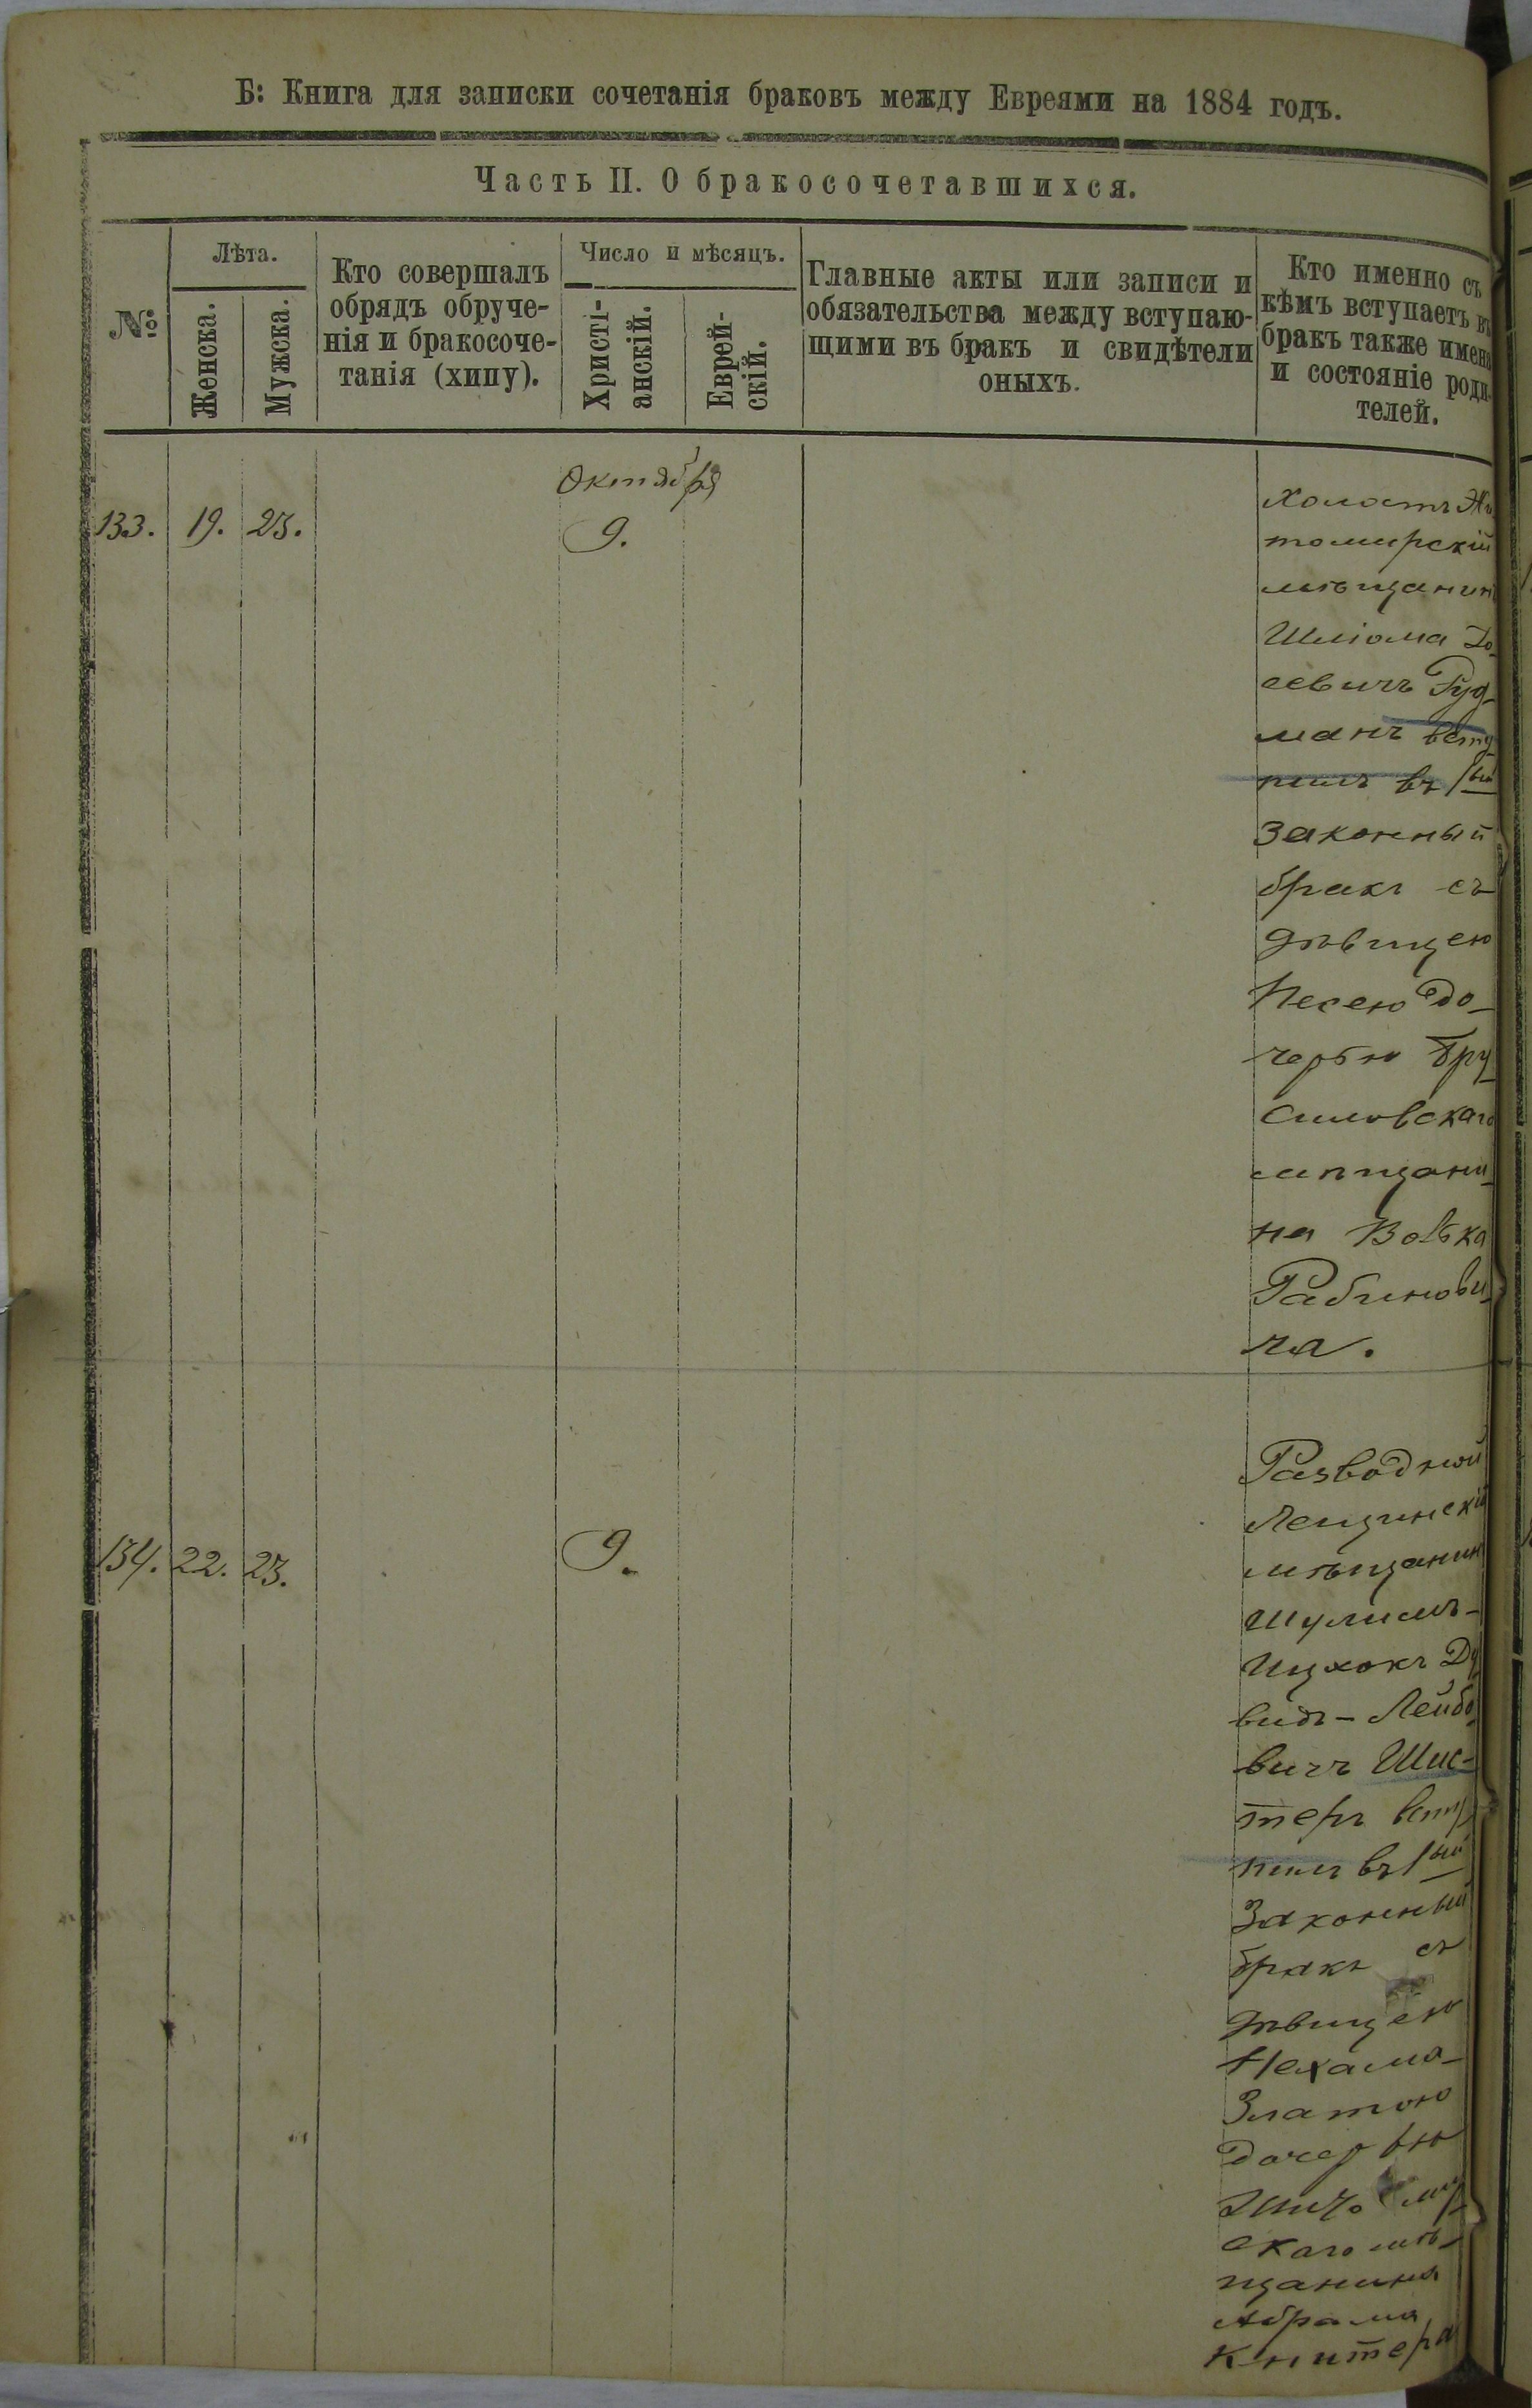 Б: Книга для записки сочетанія браковъ между Евреями на 1884 годъ.
Часть II. О бракосочетавшихся.
№
Лѣта.
Женска.
Мужска.
Кто совершалъ
обрядъ обруче-
нія и бракосоче-
танія (хипу).
Число и мѣсяцъ.
Христі-
анскій.
Еврей-
скій.
Главные акты или записи и
обязательства между вступаю-
щими въ бракъ и свидѣтели
оныхъ.
Кто именно съ
кѣмъ вступаетъ въ
бракъ также имена
и состояніе роди-
телей.
Октября
133. 19. 23. 9.
Холостъ Жи
томирскій
мѣщанин
Шліома
севичъ Гуд-
манъ всту
пилъ въ 1ый
законный
бракъ съ
дѣвицею
Песею до-
черью Бру
силовскаго
мѣщани-
на Волька
Рабинови-
ча.
134. 22. 23. 9.
Разводной
Лещинскій
мѣщанин
Шулимъ-
Ицхокъ Ду
видъ-Лейбо
вичъ Шис-
теръ всту
пилъ въ 1ый
законный
бракъ съ
дѣвицею
Нехама-
Златою
дочерью
скаго мѣ-
щанина
Абрама
Книтера